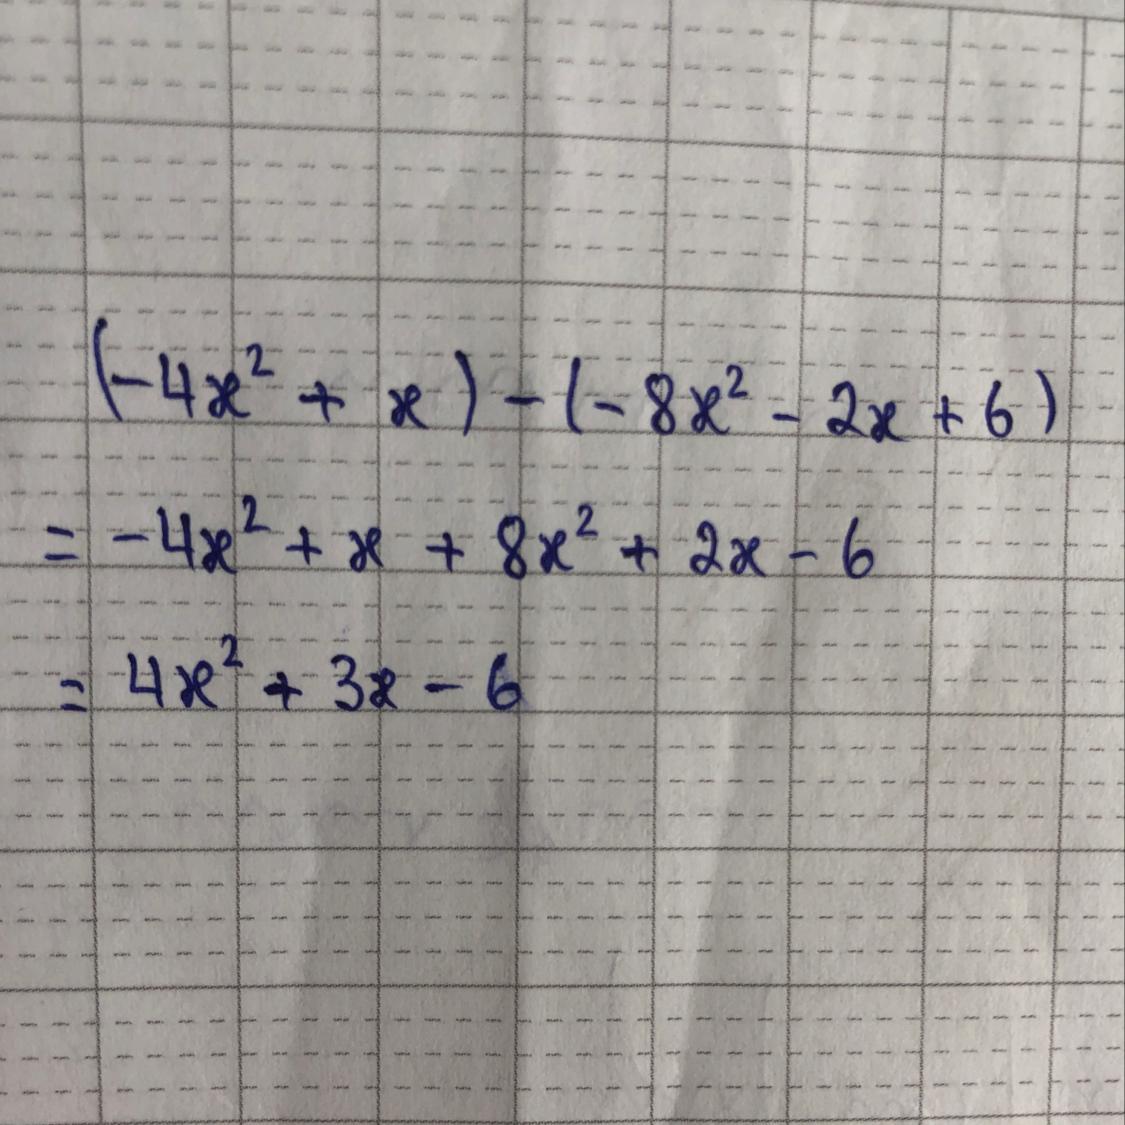 (-4x² + x) - (-8x² - 2x + 6)
= -4x² + x + 8x² + 2x - 6
= 4x² + 3x - 6